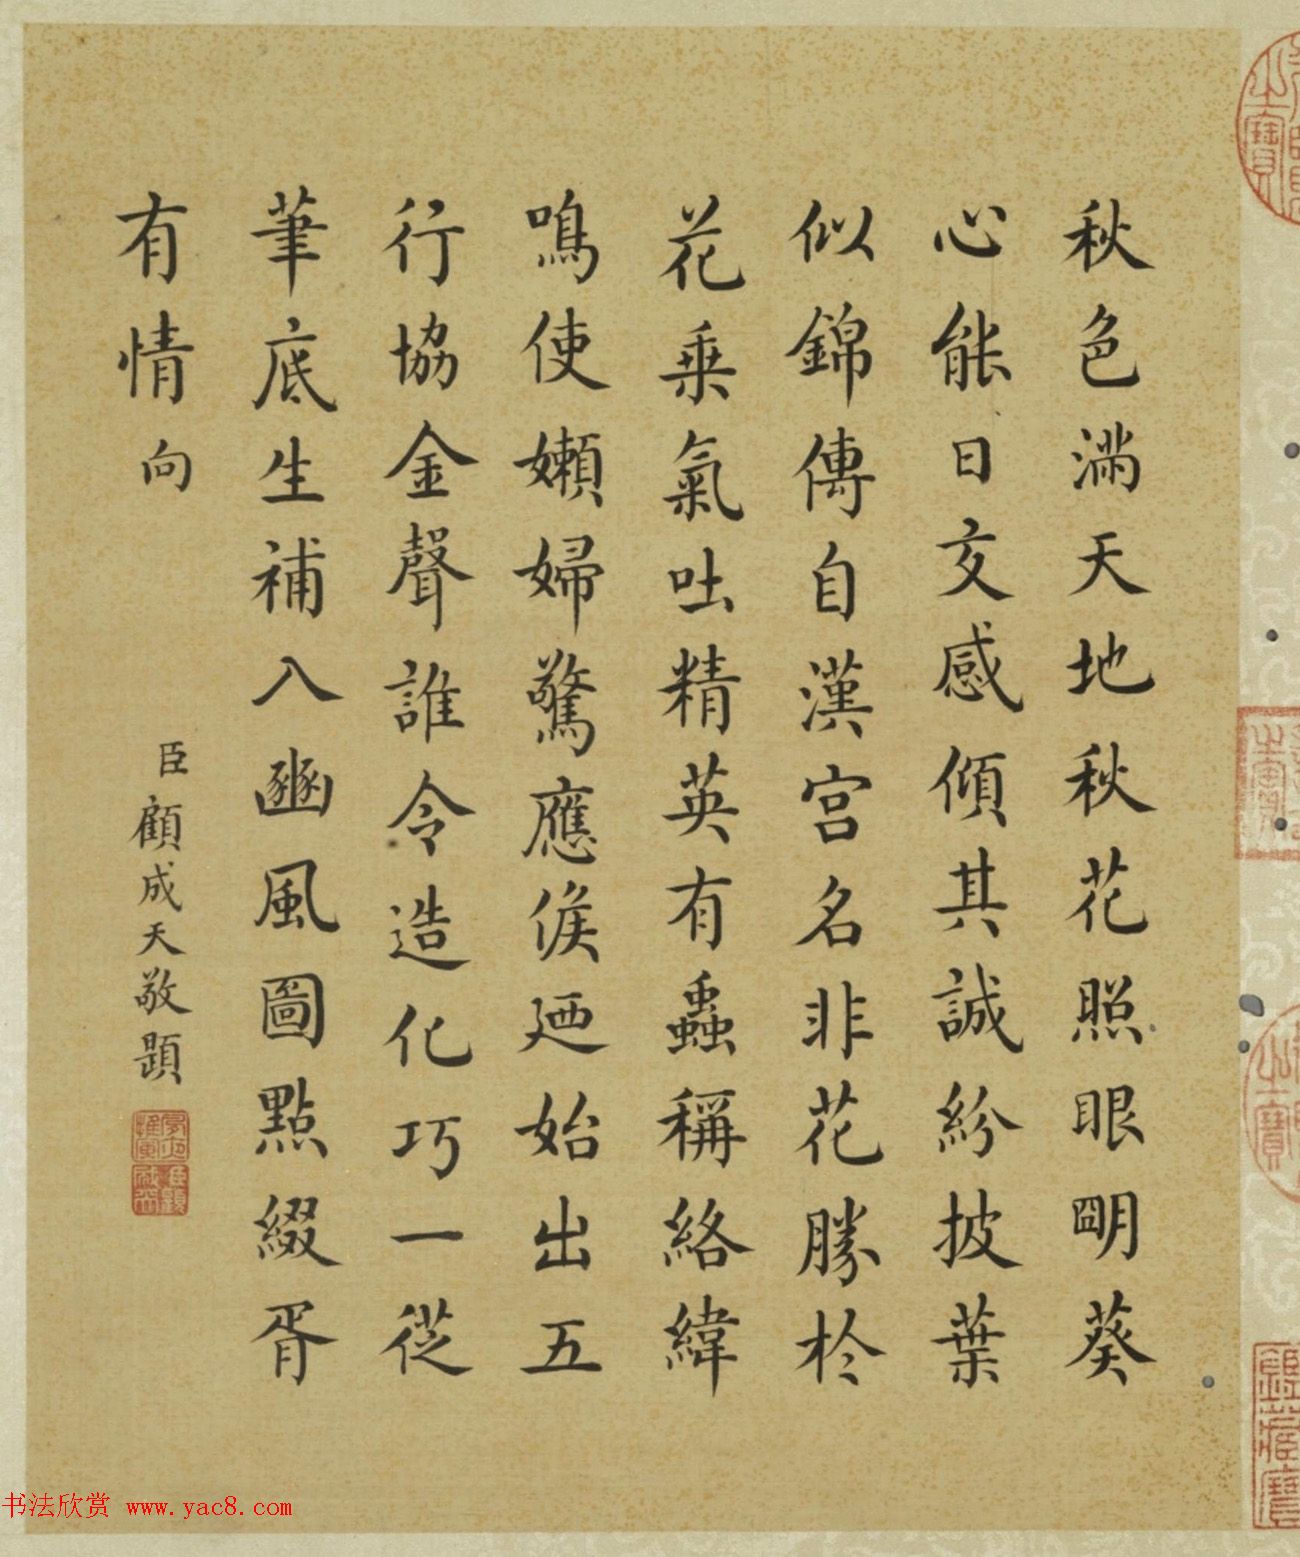 秋色滿天地秋花照眼朙葵
心能日交感傾其誠紛披葉
似錦傳自漢宫名非花勝於
花乗氣吐精英有蟲稱絡緯
鳴使嬾婦驚應候廼始出五
行協金聲誰令造化巧一從
筆底生補入豳風圖點綴胥
有情向
臣顧成天敬題
书法欣赏 www.yac8.com